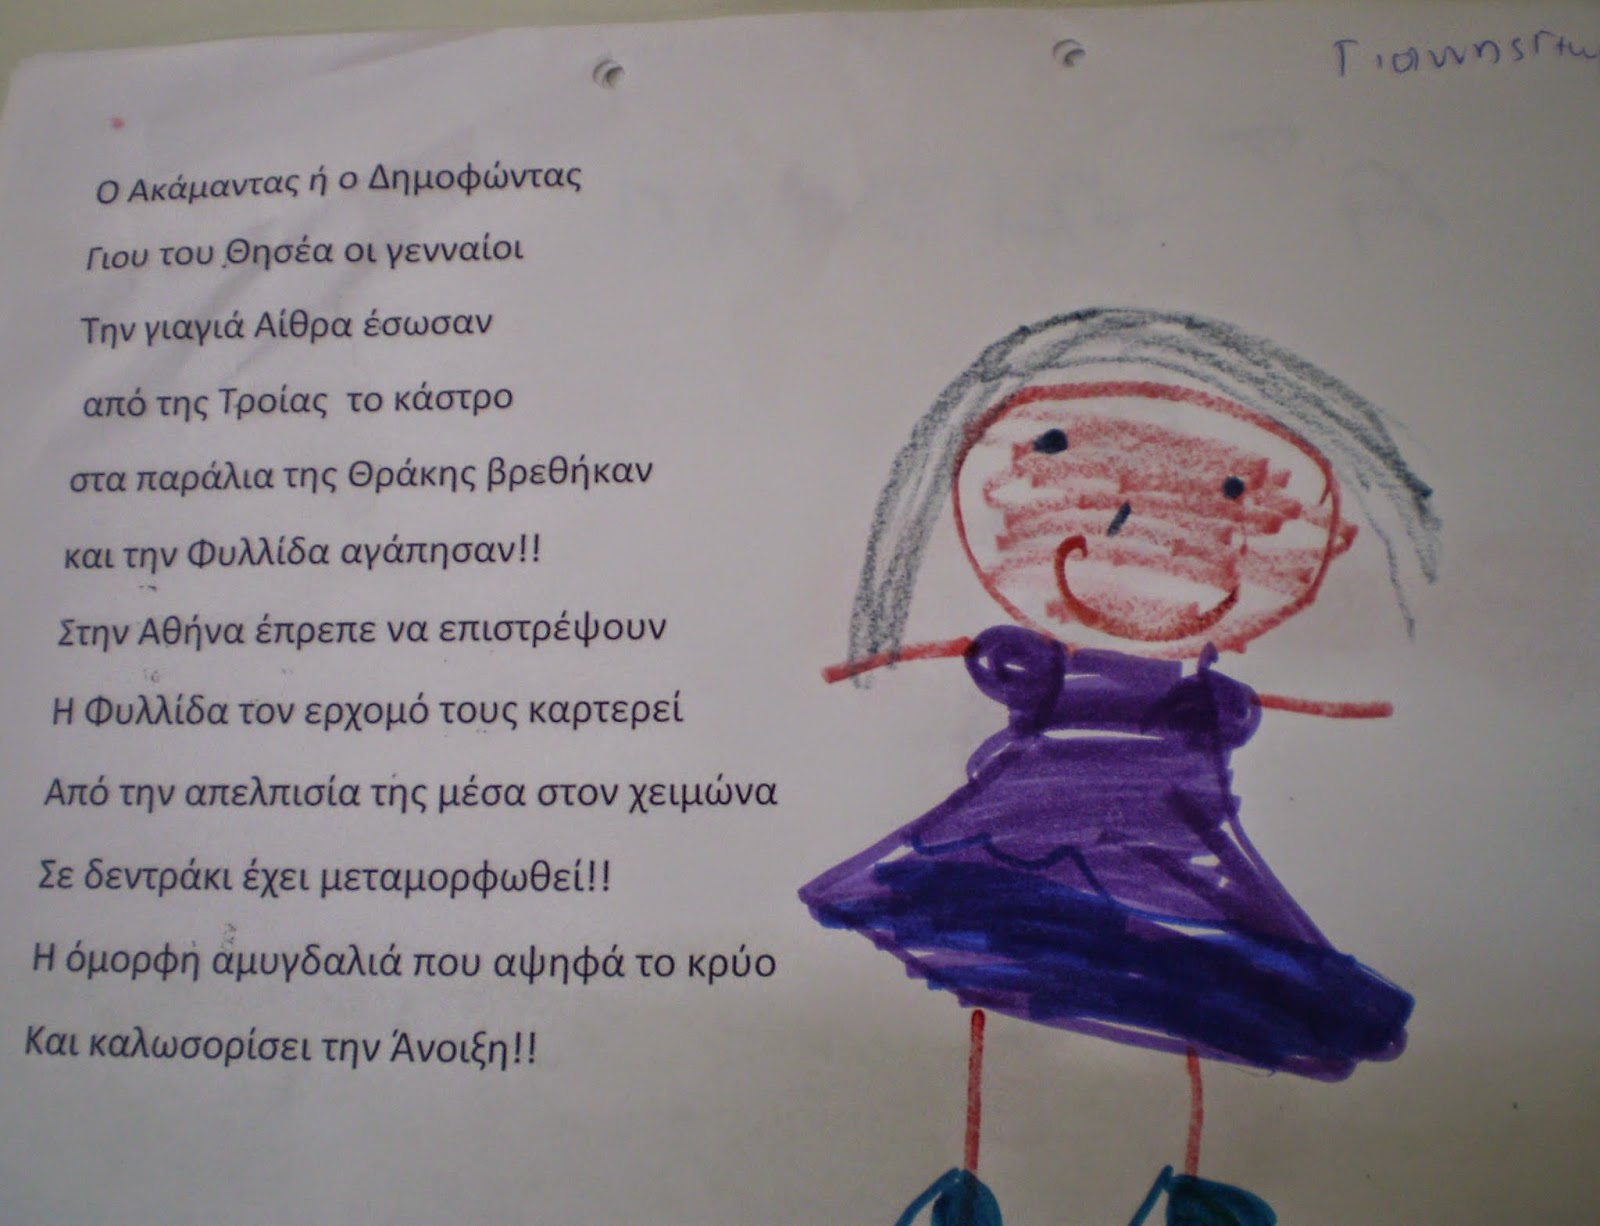 Γιαννης Γιω
Ο Ακάμαντας ή ο Δημοφώντας
Γιου του Θησέα οι γενναίοι
Την γιαγιά Αίθρα έσωσαν
από της Τροίας το κάστρο
στα παράλια της Θράκης βρεθήκαν
και την Φυλλίδα αγάπησαν!!
Στην Αθήνα έπρεπε να επιστρέψουν
Η Φυλλίδα τον ερχομό τους καρτερεί
Από την απελπισία της μέσα στον χειμώνα
Σε δεντράκι έχει μεταμορφωθεί!!
Η όμορφη αμυγδαλιά που αψηφά το κρύο
Και καλωσορίσει την Άνοιξη!!